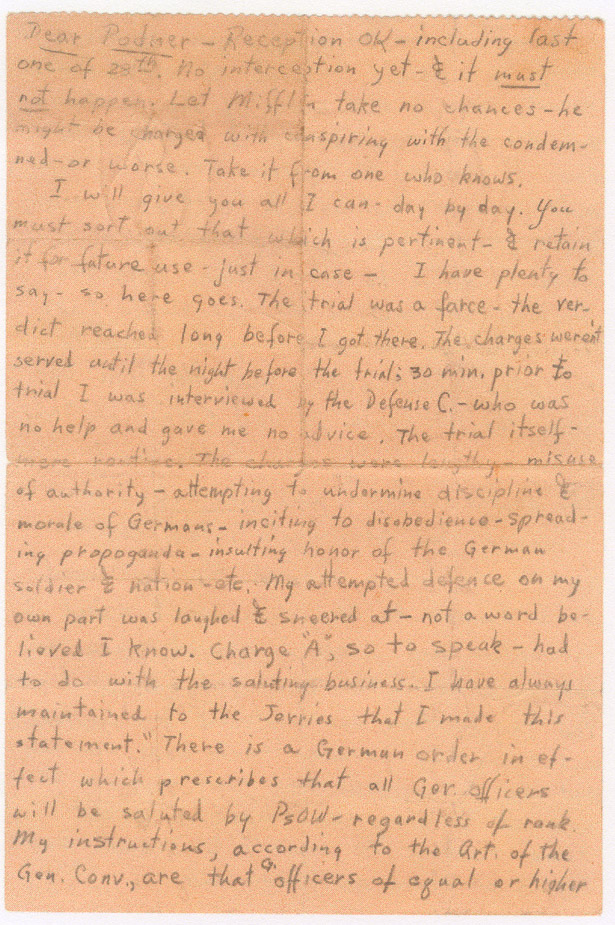 Dear Podner - Reception OK - including last
one of 28th. No interception yet - & it must
not happen. Let Mifflin take no chances - he
might be charged with conspiring with the condem-
ned - or worse. Take it from one who knows.
I will give you all I can - day by day. You
must sort out that which is pertinent - & retain
it for future use - just in case - I have plenty to
say - so here goes. The trial was a farce - the ver-
dict reached long before I got there. The charges weren't
served until the night before the trial; 30 min. prior to
trial I was interviewed by the Defense C. - who was
no help and gave me no advice. The trial itself -
mere routine. The charges were lengthy - misuse
of authority - attempting to undermine discipline &
morale of Germans - inciting to disobedience - spread-
ing propoganda - insulting honor of the German
soldier & nation - etc. My attempted defence on my
own part was laughed & sneered at - not a word be-
lieved I know. Charge "A", so to speak - had
to do with the saluting business. I have always
maintained to the Jerries that I made this
statement." There is a German order in ef-
fect which prescribes that all Ger. officers
will be saluted by PsOW - regardless of rank.
My instructions, according to the Art. of the
Gen. Conv., are that G. officers of equal or higher